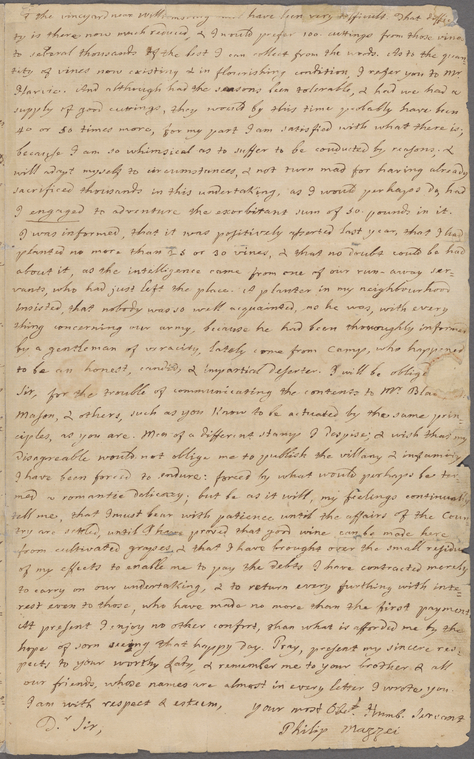 of the vineyard near Williamsburg have been very difficult. That difficul
ty is there now much reduced, & I would prefer 100 cuttings from those vines
to several thousands of the best I can collect from the woods. As to the quan
tity of vines now existing & in flourishing condition, I refer you to Mr.
Harvie. And although had the seasons been tolerable, & had we had a
supply of good cuttings, they would by this time probably have been
40 or 50 times more, for my part I am satisfied with what there is,
because I am so whimsical as to suffer to be conducted by reasons. &
will adapt myself to circumstances, & not turn mad for having already
sacrificed thousands in this undertaking, as I would perhaps do, had
I engaged to adventure the exorbitant sum of 50 pounds in it.
I was informed, that it was positively asserted last year, that I had
planted no more than 25 or 30 vines, & that no doubt could be had
about it, as the intelligence came from one of our run-away ser-
vants, who had just left the place. A planter in my neighbourhood
insisted, that nobody was so well acquainted, as he was, with every
thing concerning our army, because he had been throughly informed
by a gentleman of veracity, lately come from Camp, who happened
to be an honest, candid, & impartial deserter. I will be oblig
Sir, for the trouble of communicating the contents to Mr. Bla
Mason, & others, such as you know to be actuated by the same prin-
ciples, as you are. Men of a different stamp I despise; & wish that my
disagreable would not oblige me to publish the villany & infamity
I have been forced to endure: forced by what would perhaps be ter
med a romantic delicacy; but be as it will, my feelings continually
tell me, that I must bear with patience until the affairs of the Coun
try are settled, until I have proved that good wine can be made here
from cultivated grapes, & that I have brought over the small residue
of my effects to enable me to pay the debts I have contracted merely
to carry on our undertaking, & to return every furthing with inte-
rest even to those, who have made no more than the first payment.
At present I enjoy no other confort, than what is afforded me by the
hope of soon seeing that happy day. Pray, present my sincere res-
pects to your worthy Lady, & remember me to your brother & all
our friends, whose names are almost in every letter I wrote you
I am with respect & esteem, your most Obt. Humb. Servant
Dr. Sir,
Philip Mazzei